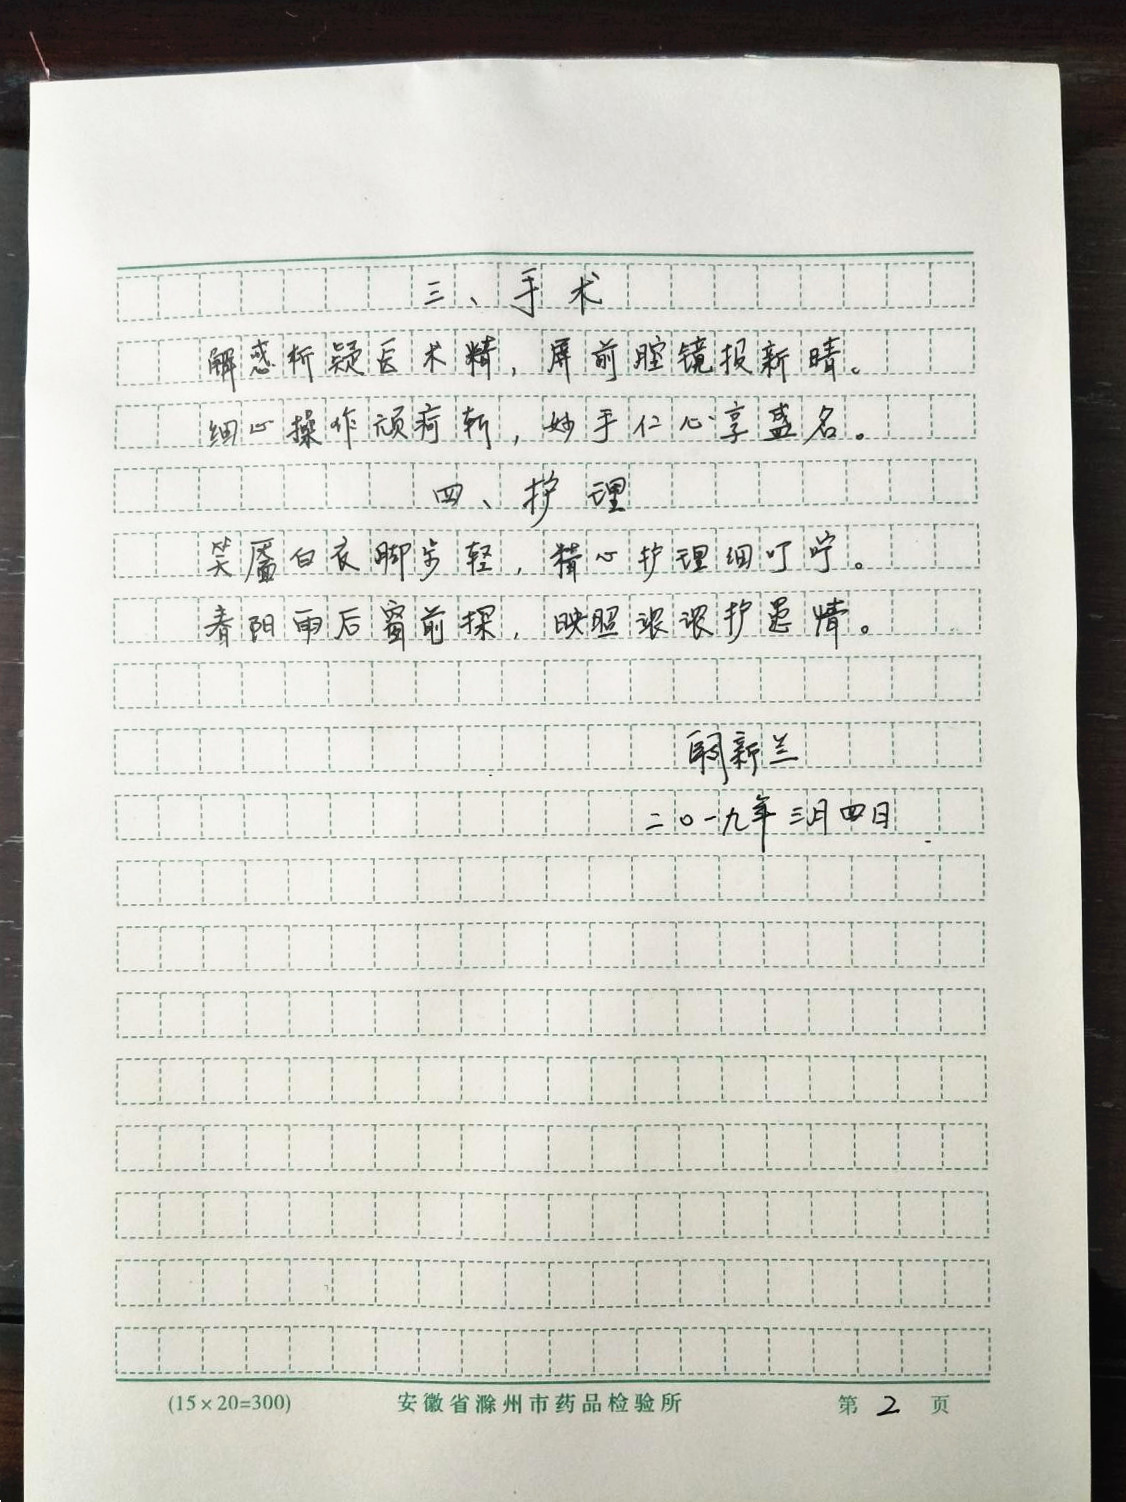 三、手术
解惑析疑医术精，屏前腔镜报新晴。
细心操作顽疴斩，妙手仁心享盛名。
四、护理
笑靥白衣脚步轻，精心护理细叮咛。
春阳雨后窗前探，映照浓浓护患情。
新兰
二〇一九年三月四日
(15×20=300) 安徽省滁州市药品检验所 第 2 页